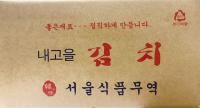 좋은재료…정직하게 만듭니다.
내고을 김치
서울식품무역